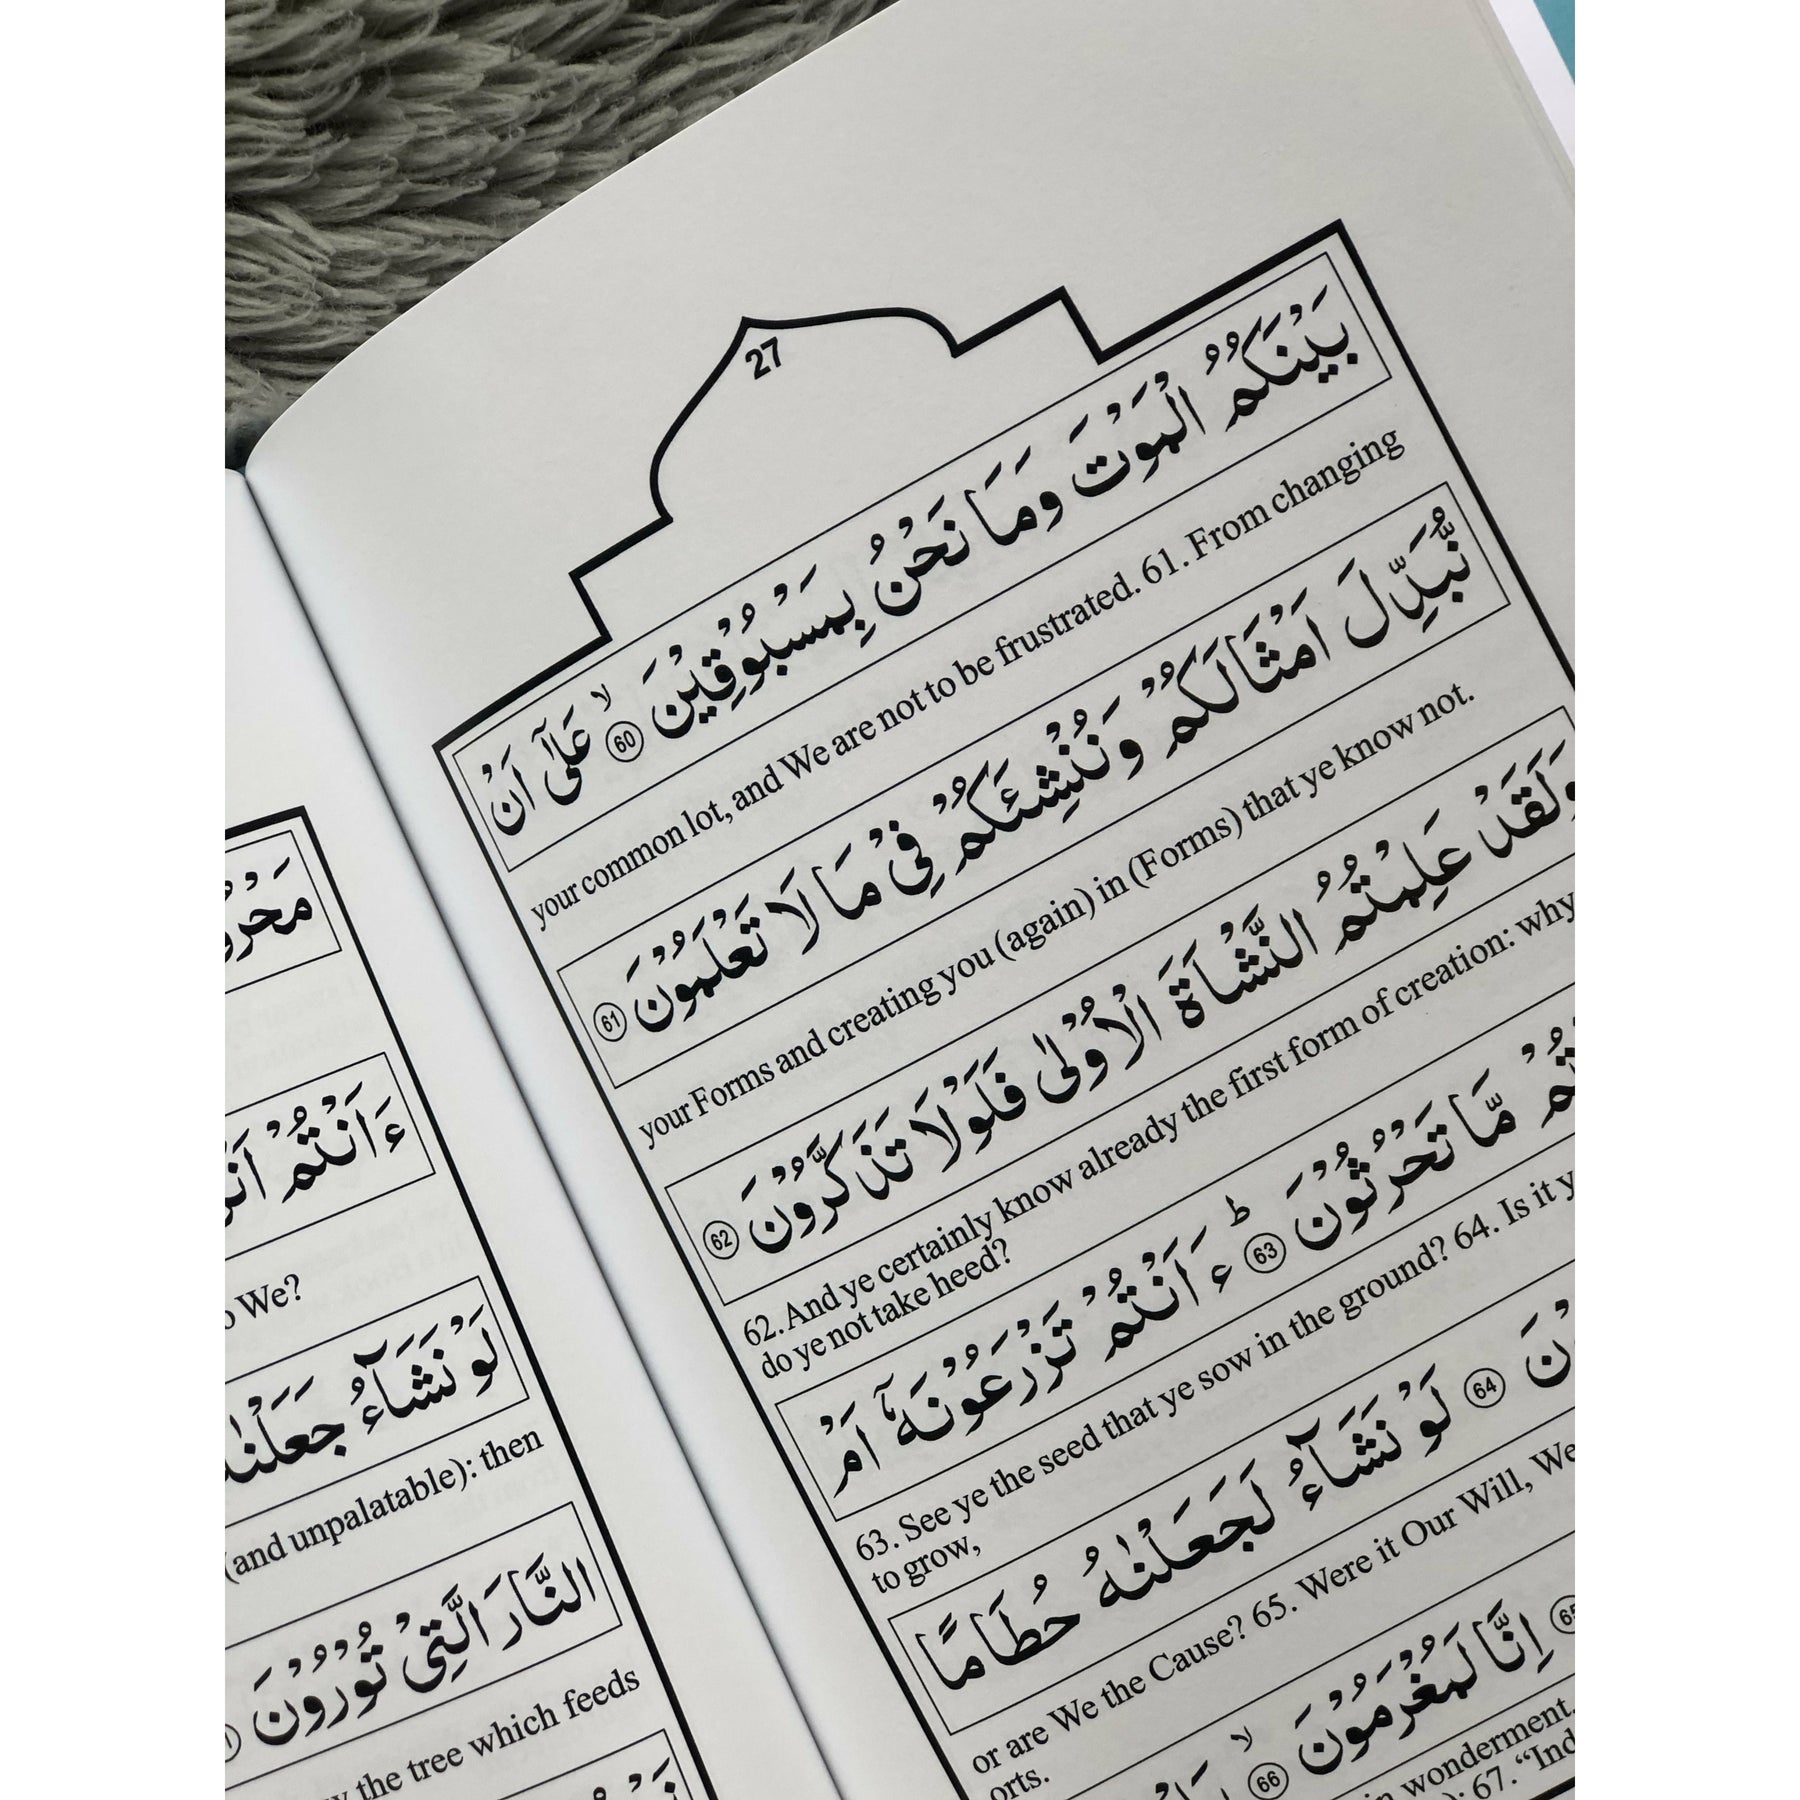 27
بَيْنَكُمُ الْمَوْتَ وَمَا نَحْنُ بِمَسْبُوْقِيْنَ ۙ 60 عَلٰٓى اَنْ
your common lot, and We are not to be frustrated. 61. From changing
نُّبَدِّلَ اَمْثَالَكُمْ وَنُنْشِئَكُمْ فِيْ مَا لَا تَعْلَمُوْنَ 61
your Forms and creating you (again) in (Forms) that ye know not.
وَلَقَدْ عَلِمْتُمُ النَّشْاَةَ الْاُوْلٰى فَلَوْلَا تَذَكَّرُوْنَ 62
62. And ye certainly know already the first form of creation: why
do ye not take heed?
مَّا تَحْرُثُوْنَ 63 ؕ ءَاَنْتُمْ تَزْرَعُوْنَهٗٓ اَمْ
63. See ye the seed that ye sow in the ground? 64. Is it
to grow,
64 لَوْ نَشَآءُ لَجَعَلْنٰهُ حُطَامًا
or are We the Cause? 65. Were it Our Will, We
orts.
65 اِنَّا لَمُغْرَمُوْنَ 66 ۙ
in wonderment.
67. “Ind
ءَاَنْتُمْ
We?
لَوْ نَشَآءُ جَعَلْنٰهُ
(and unpalatable): then
النَّارَ الَّتِيْ تُوْرُوْنَ
the tree which feeds